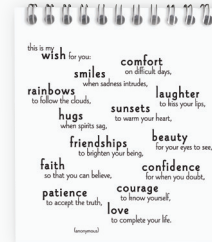 this is my
wish for you:
comfort
on difficult days,
smiles
when sadness intrudes,
rainbows
to follow the clouds,
laughter
to kiss your lips,
sunsets
to warm your heart,
hugs
when spirits sag,
beauty
for your eyes to see,
friendships
to brighten your being,
faith
so that you can believe,
confidence
for when you doubt,
courage
to know yourself,
patience
to accept the truth,
love
to complete your life.
{anonymous}